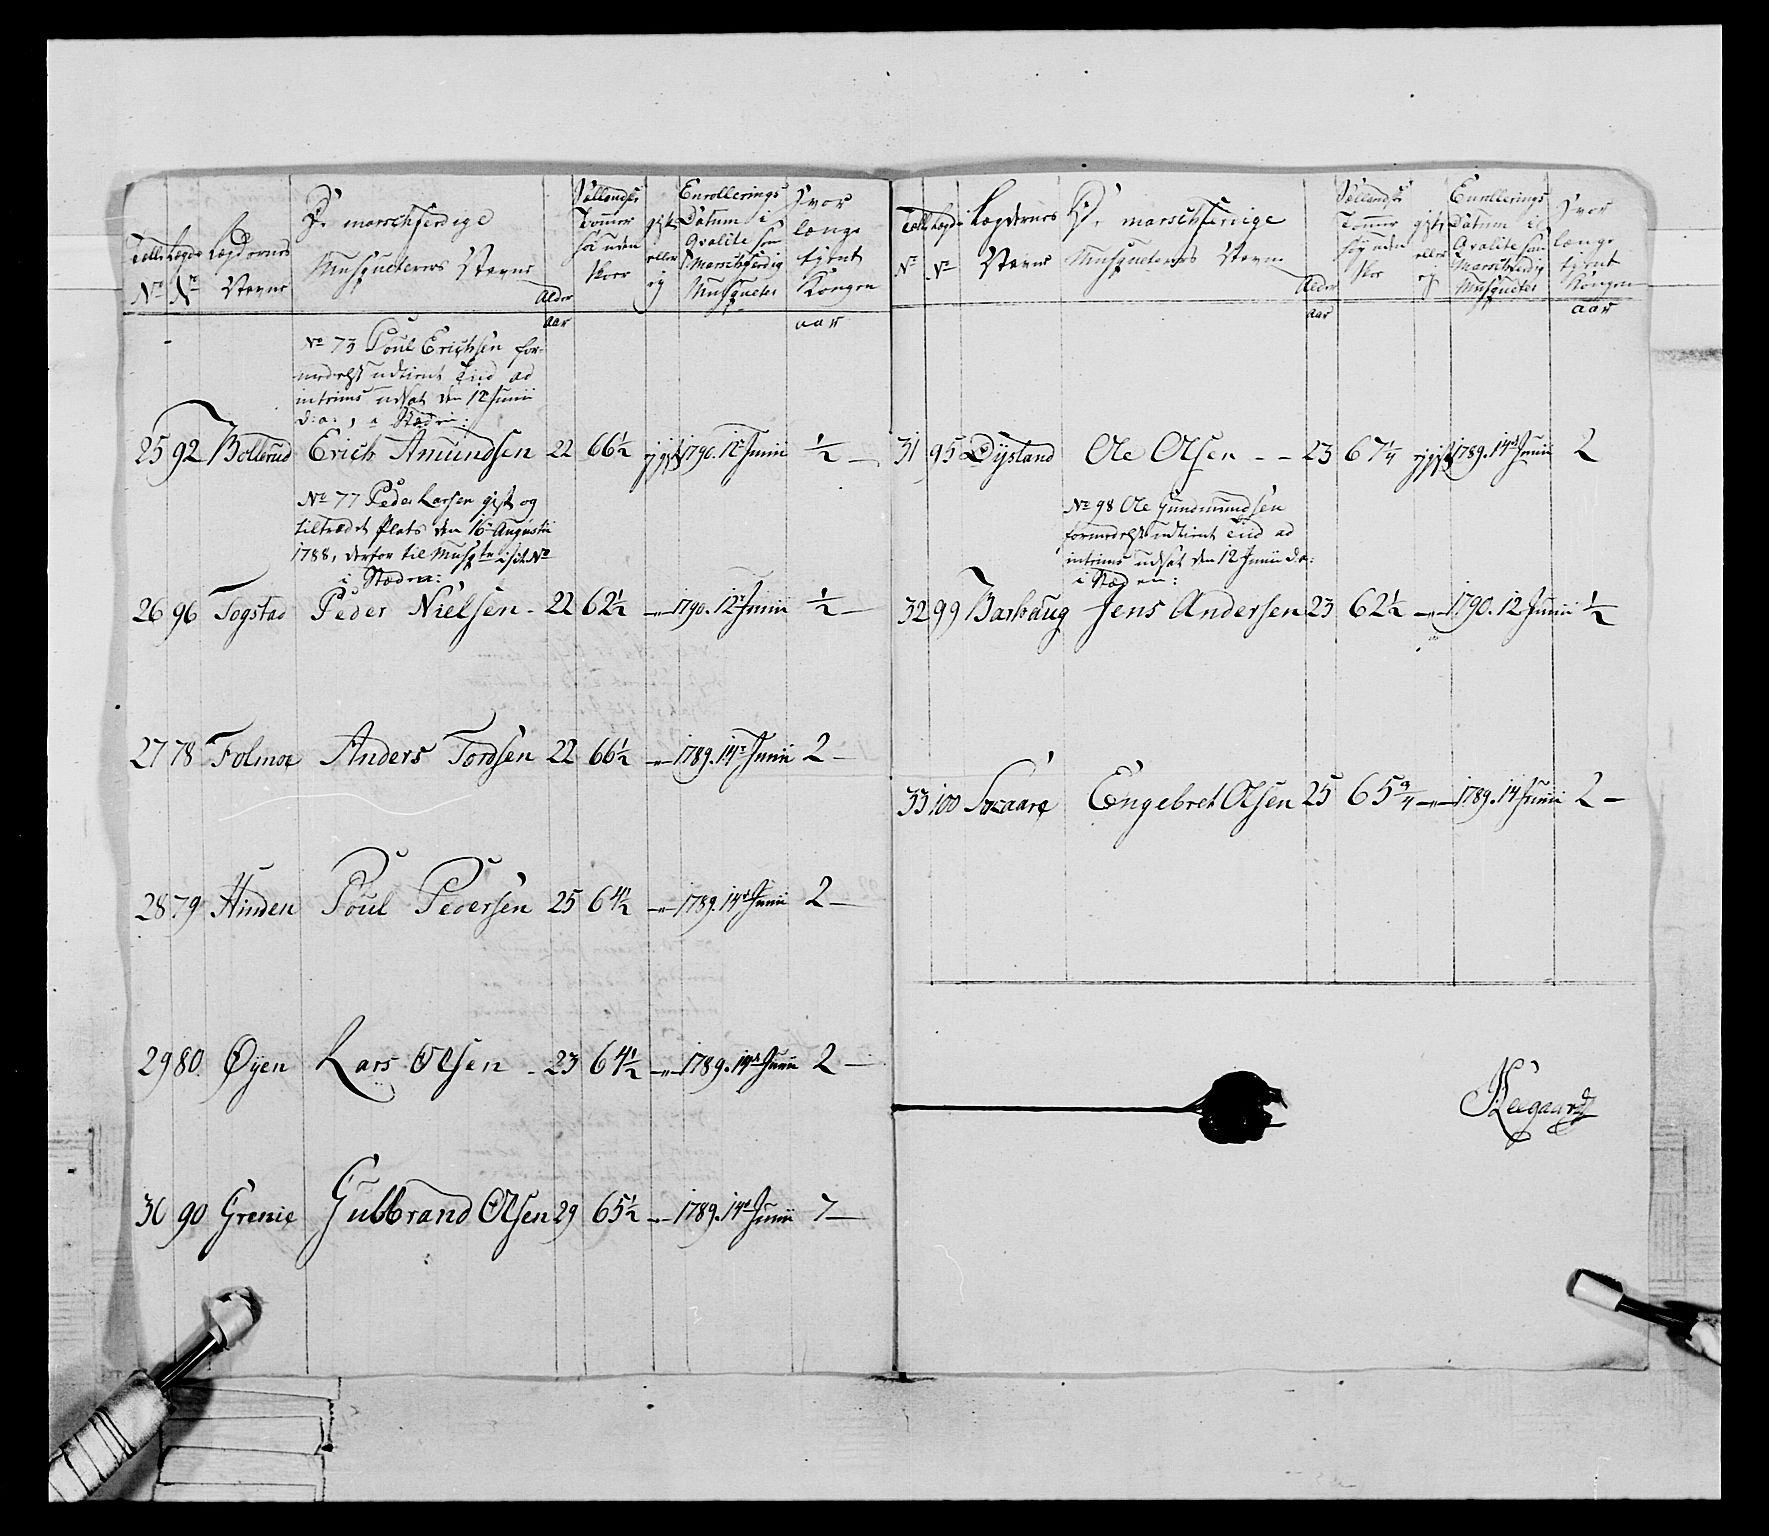 Telle Nr. Lægde Nr. Lægdernes Navne
De marschferdige Musqueterers Navne
Alder aar
Sællands Tommer høi uden skoe
gift eller ej
Enrollerings Datum i Qvalite som Marschferdig Musqueter
Hvor længe tient Kongen aar
No 73 Poul Erichsen for-
medelst udtient Tiid ad
intrims udsat den 12 Junii
d: a:, i Stæden:
25 92 Bollerud Erich Amundsen 22 66½ ej gift 1790. 12te Junii ½ —
No 77 Peder Larsen gift og
tiltraadt Plads den 16 Augustii
1788, derfor til
i Stæden:
26 96 Togstad Peder Nielsen - 22 62½ —"— 1790. 12te Junii ½ —
27 78 Folmoe Anders Tordsen 22 66½ —"— 1789. 14de Junii 2 —
28 79 Hinden Poul Pedersen 25 64½ —"— 1789. 14de Junii 2 —
29 80. Øyen Lars Olsen - 23 64½ —"— 1789. 14de Junii 2 —
30 90 Grenie Gulbrand Olsen 29 65½ —"— 1789. 14de Junii 7 —
Telle Nr. Lægde Nr. Lægdernes Navne
De marschferdige Musqueterers Navne
Alder aar
Sællands Tommer høy uden skoe
gift eller ej
Enrollerings Datum i Qvalite som Marschferdig Musqueter
Hvor længe tient Kongen aar
31 95 Dystand Ole Olsen - - 23 67¼ ej gift 1789. 14de Junii 2
No 98 Ole Gundmundsen
formedelst udtient Tiid ad
intrims udsat den 12 Junii d: a:
i Stæden:
32 99 Barhaug Jens Andersen 23 62½ —"— 1790. 12 Junii ½
33 100 Engebret Olsen 25 65¾ —"— 1789. 14 Junii 2 —